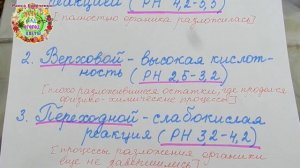 реакцией (PH 4,2-5,5)
[полностью органика разложилась]
2. Верховой - высокая кислот-
ность (PH 2,5-3,2)
[плохо разложившиеся остатки, где прошли
физико-химические процессы]
3. Переходной - слабокислая
реакция (PH 3,2-4,2)
[процессы разложения органики
еще не завершились]